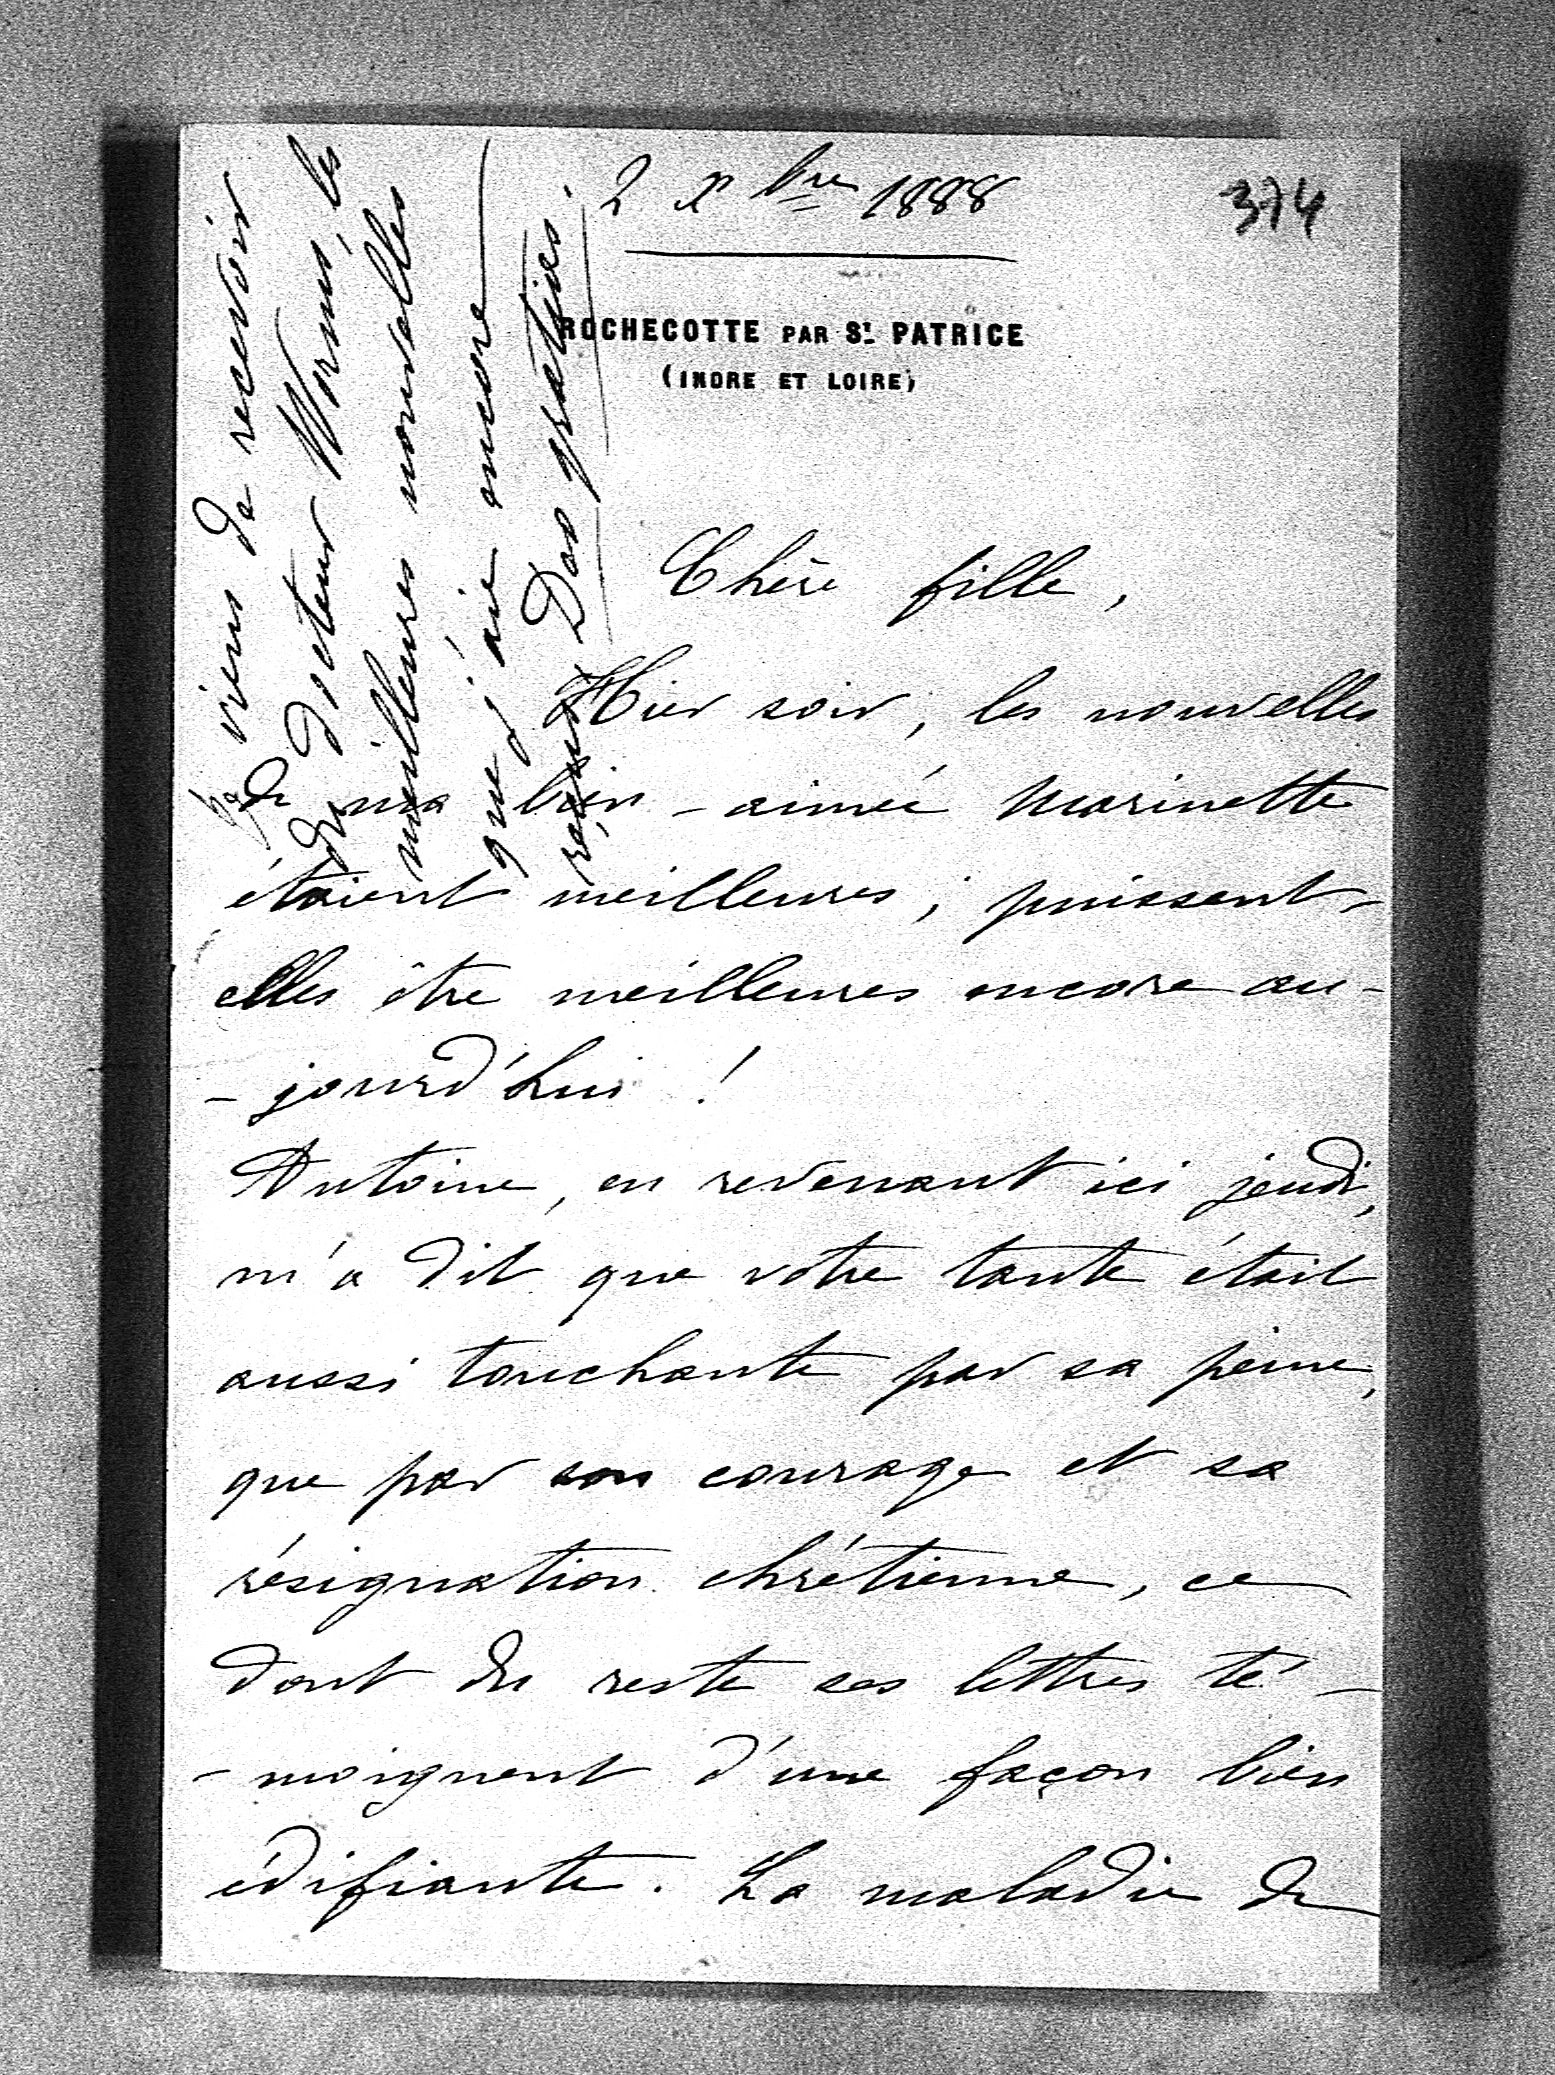 2 Xbre 1888
374
ROCHECOTTE PAR St PATRICE
(INDRE ET LOIRE)
Chère fille,
Hier soir, les nouvelles
de ma bien-aimée Marinette
étaient meilleures; puissent-
elles être meilleures encore au-
-jourd'hui !
Antoine, en revenant ici jeudi,
m'a dit que votre tante était
aussi touchante par sa peine,
que par son courage et sa
résignation chrétienne, ce
dont du reste ses lettres té-
-moignent d'une façon bien
édifiante. La maladie de
Je viens de recevoir
du docteur Worms, les
meilleures nouvelles
que j'aie encore
reçues Deo gratias.